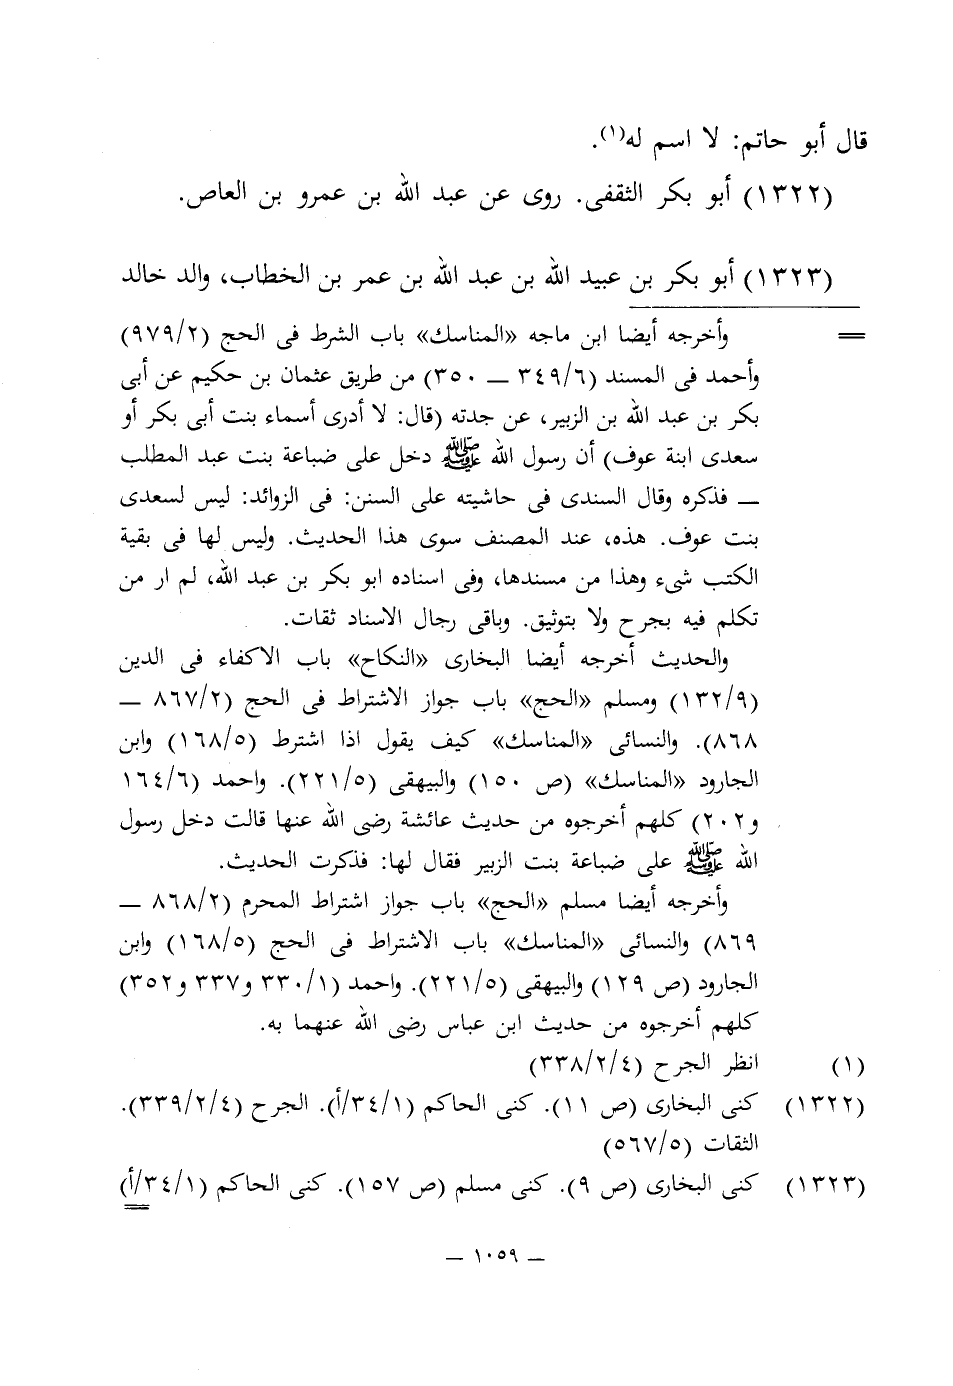 قال أبو حاتم: لا اسم له(١).
(١٣٢٢) أبو بكر الثقفى. روى عن عبد الله بن عمرو بن العاص.
(١٣٢٣) أبو بكر بن عبيد الله بن عبد الله بن عمر بن الخطاب، والد خالد
= وأخرجه أيضا ابن ماجه «المناسك» باب الشرط فى الحج (٩٧٩/٢)
وأحمد فى المسند (٣٤٩/٦ ــ ٣٥٠) من طريق عثمان بن حكيم عن أبى
بكر بن عبد الله بن الزبير، عن جدته (قال: لا أدرى أسماء بنت أبى بكر أو
سعدى ابنة عوف) أن رسول الله ﷺ دخل على ضباعة بنت عبد المطلب
ــ فذكره وقال السندى فى حاشيته على السنن: فى الزوائد: ليس لسعدى
بنت عوف. هذه، عند المصنف سوى هذا الحديث. وليس لها فى بقية
الكتب شىء وهذا من مسندها، وفى اسناده ابو بكر بن عبد الله، لم ار من
تكلم فيه بجرح ولا بتوثيق. وباقى رجال الاسناد ثقات.
والحديث أخرجه أيضا البخارى «النكاح» باب الاكفاء فى الدين
(١٣٢/٩) ومسلم «الحج» باب جواز الاشتراط فى الحج (٨٦٧/٢ ــ
٨٦٨). والنسائى «المناسك» كيف يقول اذا اشترط (١٦٨/٥) وابن
الجارود «المناسك» (ص ١٥٠) والبيهقى (٢٢١/٥). واحمد (١٦٤/٦
و٢٠٢) كلهم أخرجوه من حديث عائشة رضى الله عنها قالت دخل رسول
الله ﷺ على ضباعة بنت الزبير فقال لها: فذكرت الحديث.
وأخرجه أيضا مسلم «الحج» باب جواز اشتراط المحرم (٨٦٨/٢ ــ
٨٦٩) والنسائى «المناسك» باب الاشتراط فى الحج (١٦٨/٥) وابن
الجارود (ص ١٢٩) والبيهقى (٢٢١/٥). واحمد (٣٣٠/١ و٣٣٧ و٣٥٢)
كلهم أخرجوه من حديث ابن عباس رضى الله عنهما به.
(١) انظر الجرح (٣٣٨/٢/٤)
(١٣٢٢) كنى البخارى (ص ١١). كنى الحاكم (٣٤/١/أ). الجرح (٣٣٩/٢/٤).
الثقات (٥٦٧/٥)
(١٣٢٣) كنى البخارى (ص ٩). كنى مسلم (ص ١٥٧). كنى الحاكم (٣٤/١/أ)
=
ــ ١٠٥٩ ــ